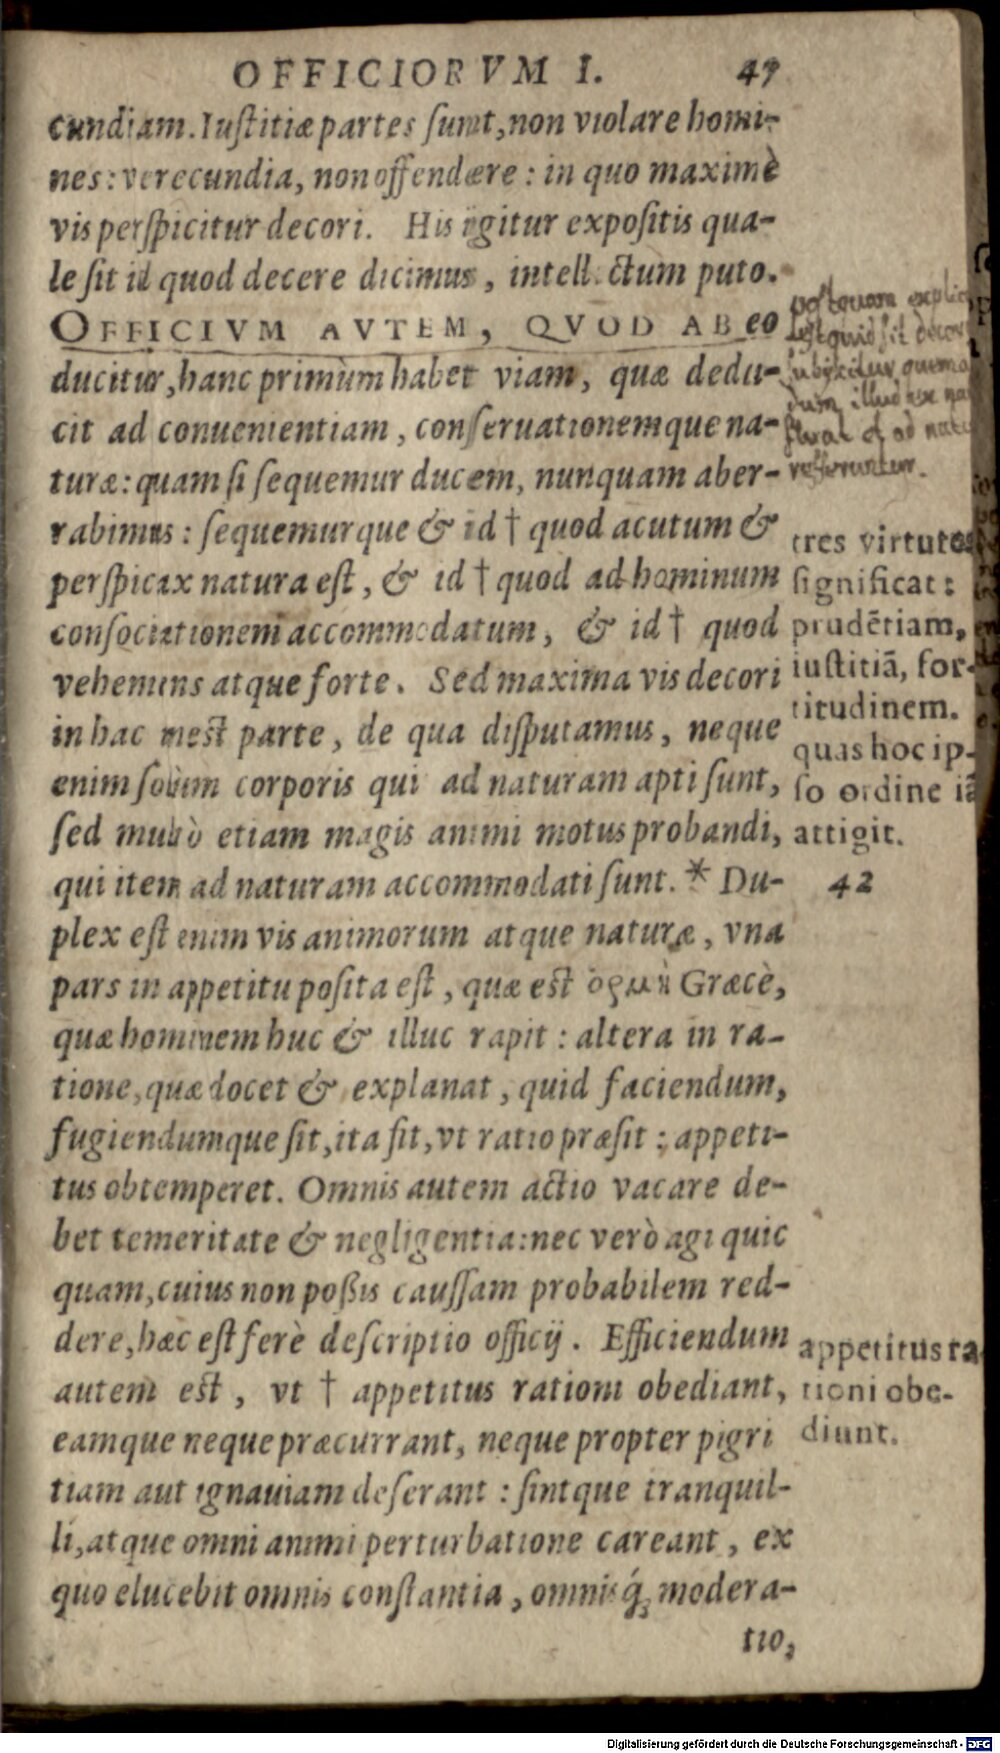 OFFICIORVM I. 47
cundiam. Iuſtitiæ partes ſunt, non violare homi-
nes: verecundia, non offendere: in quo maximè
vis perſpicitur decori. His igitur expoſitis qua-
le ſit id quod decere dicimus, intellectum puto.
OFFICIVM AVTEM, QVOD AB eo
ducitur, hanc primùm habet viam, quæ dedu-
cit ad conuenientiam, conſeruationemque na-
turæ: quam ſi ſequemur ducem, nunquam aber-
rabimus: ſequemurque & id † quod acutum &
perſpicax natura eſt, & id † quod ad hominum
conſociationem accommodatum, & id † quod
vehemens atque forte. Sed maxima vis decori
in hac ineſt parte, de qua diſputamus, neque
enim ſolùm corporis qui ad naturam apti ſunt,
ſed multò etiam magis animi motus probandi,
qui item ad naturam accommodati ſunt. * Du-
plex eſt enim vis animorum atque naturæ, vna
pars in appetitu poſita eſt, quæ eſt ὁρμὴ Græcè,
quæ hominem huc & illuc rapit: altera in ra-
tione, quæ docet & explanat, quid faciendum,
fugiendumque ſit, ita fit, vt ratio præſit: appeti-
tus obtemperet. Omnis autem actio vacare de-
bet temeritate & negligentia: nec verò agi quic
quam, cuius non poßis cauſſam probabilem red-
dere, hæc eſt ferè deſcriptio officij. Efficiendum
autem est, vt † appetitus rationi obediant,
eamque neque præcurrant, neque propter pigri
tiam aut ignauiam deſerant: ſintque tranquil-
li, atque omni animi perturbatione careant, ex
quo elucebit omnis conſtantia, omnisq́; modera-
tio,
postquam
quid sit
illud
et ad
referuntur.
tres virtutes
ſignificat:
prudētiam,
iuſtitiā, for-
titudinem.
quas hoc ip-
ſo ordine iā
attigit.
42
appetitus ra
tioni obe-
diunt.
Digitalisierung gefördert durch die Deutsche Forschungsgemeinschaft - DFG